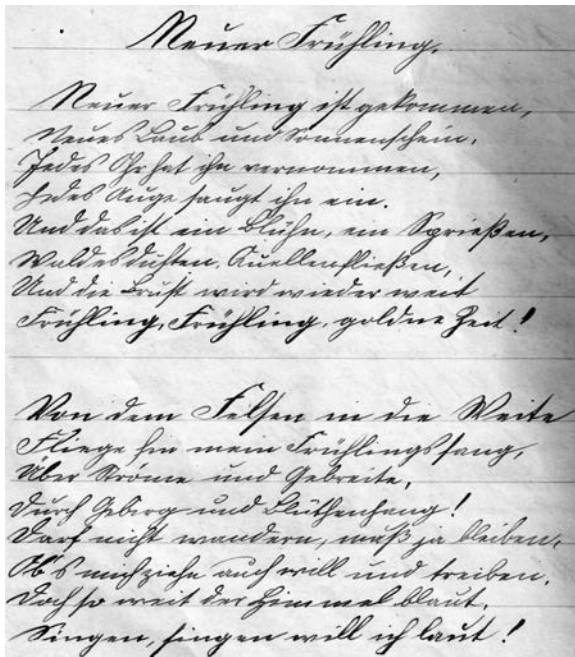 Neuer Frühling.
Neuer Frühling ist gekommen,
Neues Laub und Sonnenschein,
Jedes Ohr hat ihn vernommen,
Jedes Auge saugt ihn ein.
Und das ist ein Blühn, ein Sprießen,
Waldesduften, Quellenfließen,
Und die Brust wird wieder weit
Frühling, Frühling, goldne Zeit!
Von dem Felsen in die Weite
Fliege hin mein Frühlingssang,
Über Ströme und Gebreite,
Durch Gebirg und Blüthenhang!
Darf nicht wandern, muß ja bleiben,
Ob's mich ziehn auch will und treiben,
Doch so weit der Himmel blaut,
Singen, singen will ich laut!